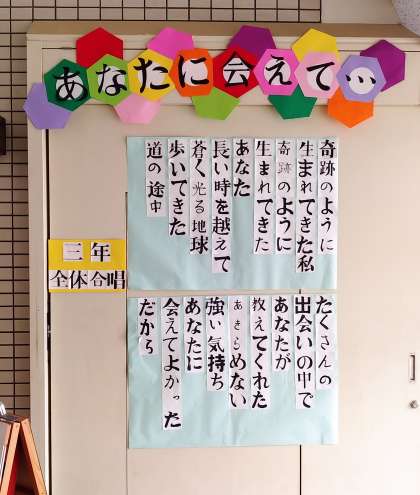 あなたに会えて…
三年
全体合唱
奇跡のように
生まれてきた私
奇跡のように
生まれてきた
あなた
長い時を越えて
蒼く光る地球
歩いてきた
道の途中
たくさんの
出会いの中で
あなたが
教えてくれた
あきらめない
強い気持ち
あなたに
会えてよかった
だから